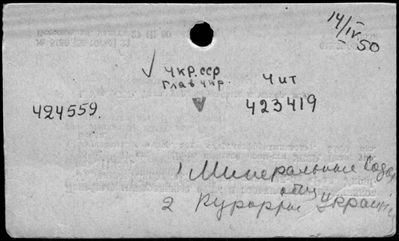 14/IV 50
√ Укр. сср
Главчкр. Чит
424559. 423419
1 Минеральные воды
2 Курорты Украины